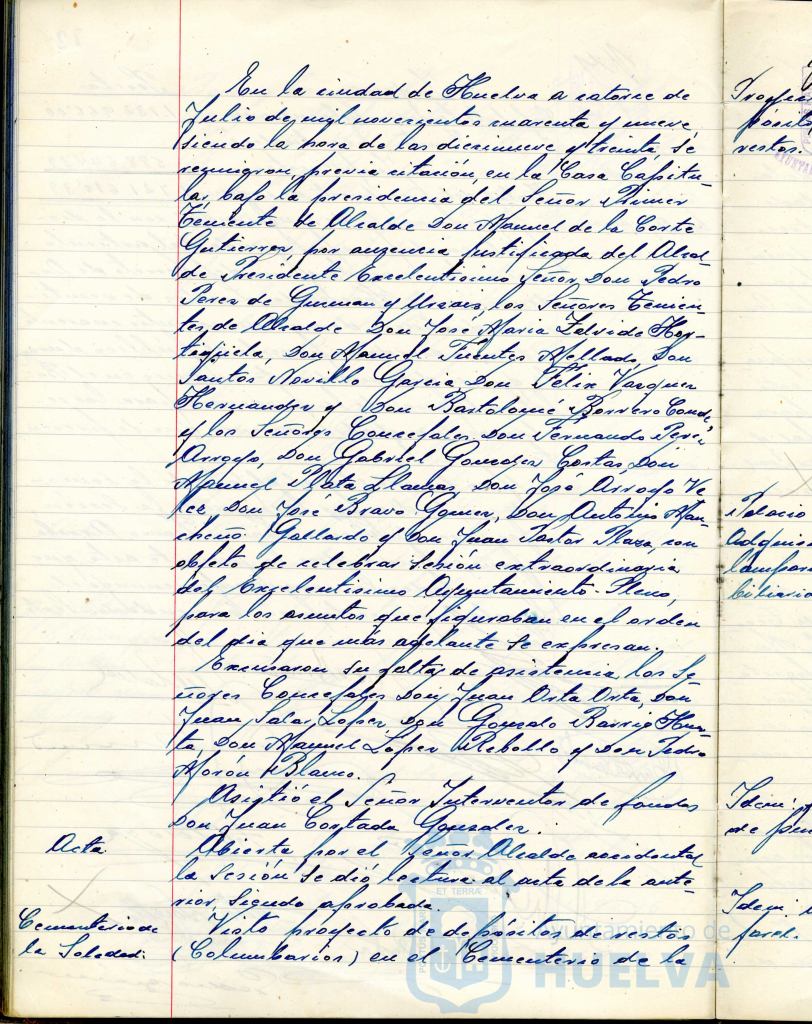 En la ciudad de Huelva a catorce de
Julio de mil novecientos cuarenta y nueve
siendo la hora de las diecinueve y treinta, se
reunieron, previa citación, en la Casa Capitu-
lar, bajo la presidencia del Señor Primer
Teniente de Alcalde Don Manuel de la Corte
Gutierrez, por ausencia justificada del Alcal-
de Presidente Excelentisimo Señor Don Pedro
Perez de Guzman y Urzaiz, los Señores Tenien-
tes de Alcalde Don José Maria Zalvide Hor-
tigüela, Don Manuel Fuentes Mellado, Don
Santos Novillo Garcia, Don Felix Vazquez
Hernandez y Don Bartolomé Borrero Conde
y los Señores Concejales, Don Fernando Perez
Arroyo, Don Gabriel Gonzalez Cortas, Don
Manuel Plata Llamas, Don José Arroyo Ve-
lez, Don José Bravo Gomez, Don Antonio Man-
cheño Gallardo y Don Juan Pastor Plaza, con
objeto de celebrar sesión extraordinaria
del Excelentisimo Ayuntamiento-Pleno,
para los asuntos que figuraban en el orden
del dia que más adelante se expresan.
Excusaron su falta de asistencia, los Se-
ñores Concejales Don Juan Orta Orta, Don
Juan Salas Lopez, Don Gonzalo Barrig Huer-
ta, Don Manuel López Rebollo y Don Pedro
Morón Blanco.
Asistió el Señor Interventor de fondos
Don Juan Cortada Gonzalez.
Acta. Abierta por el Señor Alcalde accidental
la sesión se dió lectura al acta de la ante-
rior, siendo aprobada.
Cementerio de Visto proyecto de depósitos de restos
la Soledad: (Columbarios) en el Cementerio de la
pósito
restos.
Palacio
Adquisi
lampara
biliario
Idem:
Idem:
farol.
ET TERRAE
Ayuntamiento de
HUELVA